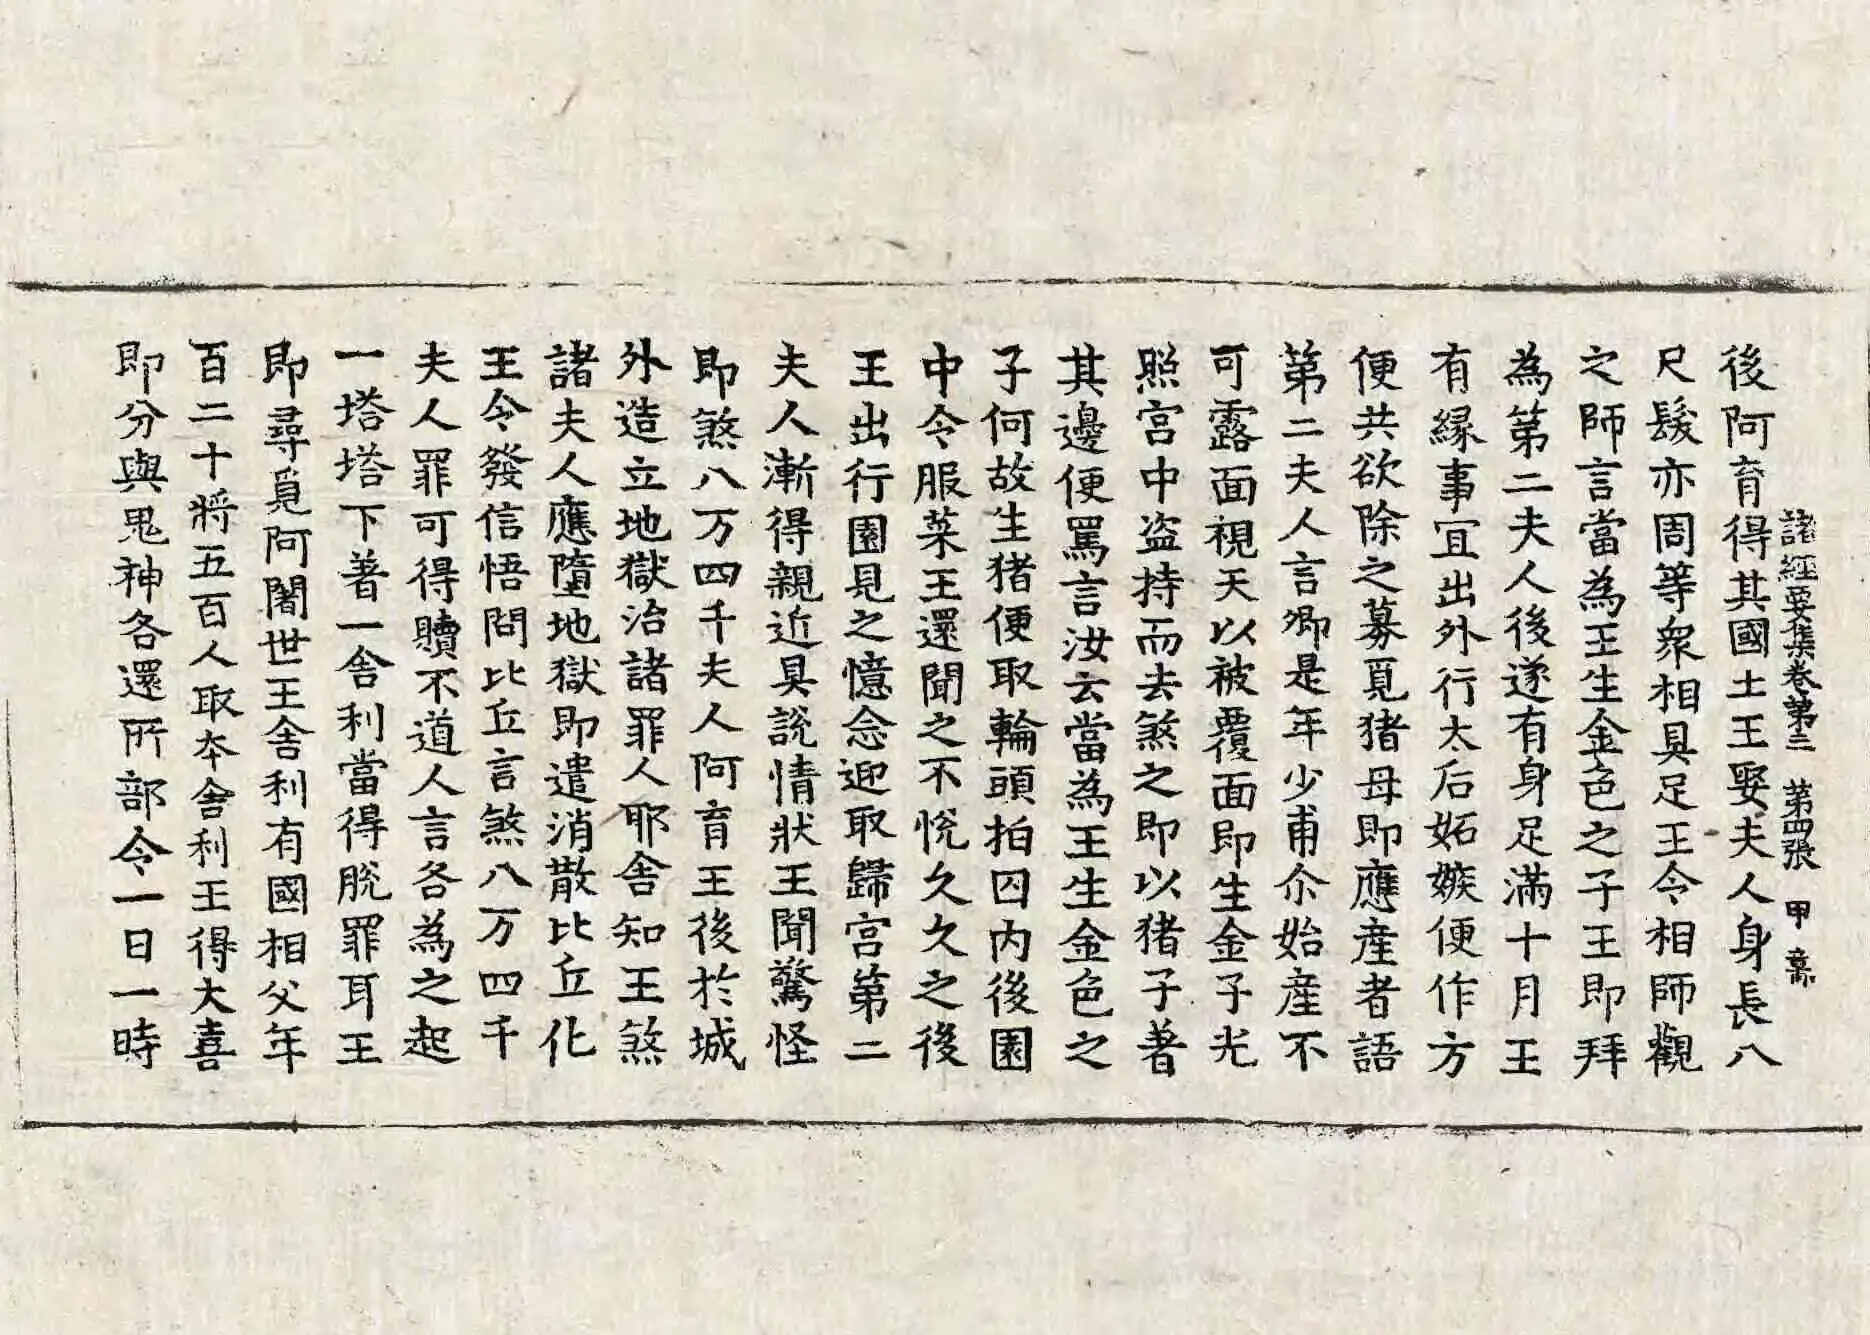 諸經要集卷第三　第四張　甲
後阿育得其國土王娶夫人身長八
尺髮亦周等衆相具足王令相師觀
之師言當為王生金色之子王即拜
為第二夫人後遂有身足滿十月王
有縁事冝出外行太后妬嫉便作方
便共欲除之募覓猪母即應産者語
第二夫人言卿是年少甫尒始産不
可露面視天以被覆面即生金子光
照宫中盗持而去煞之即以猪子著
其邊便罵言汝云當為王生金色之
子何故生猪便取輪頭拍囚内後園
中令服菜王還聞之不悅久久之後
王出行園見之憶念迎取歸宫第二
夫人漸得親近具說情狀王聞驚怪
即煞八万四千夫人阿育王後於城
外造立地獄治諸罪人耶舍知王煞
諸夫人應墮地獄即遣消散比丘化
王令發信悟問比丘言煞八万四千
夫人罪可得贖不道人言各為之起
一塔塔下著一舍利當得脫罪耳王
即尋覓阿闍世王舍利有國相父年
百二十將五百人取夲舍利王得大喜
即分與鬼神各還所部令一日一時